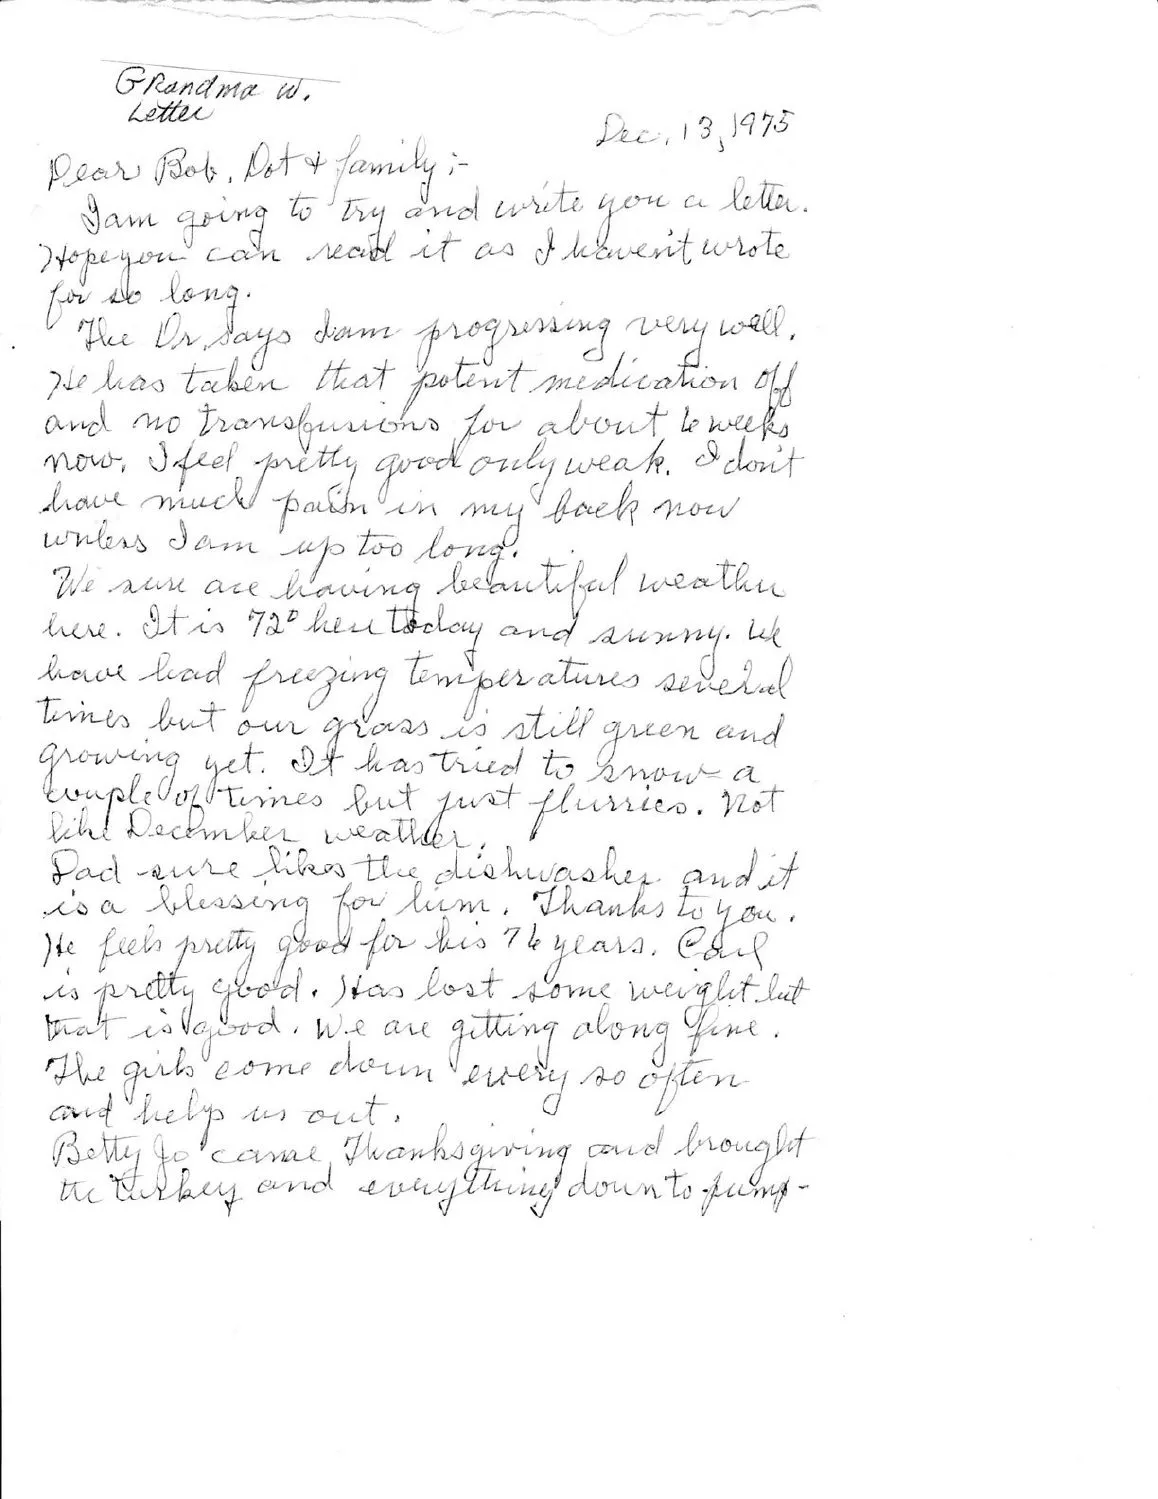 Grandma W.
Letter
Dec. 13, 1975
Dear Bob, Dot & family;-
I am going to try and write you a letter.
Hope you can read it as I haven't wrote
for so long.
The Dr. says I am progressing very well.
He has taken that potent medication off
and no transfusions for about 6 weeks
now. I feel pretty good only weak. I don't
have much pain in my back now
unless I am up too long.
We sure are having beautiful weather
here. It is 72° here today and sunny. We
have had freezing temperatures several
times but our grass is still green and
growing yet. It has tried to snow a
couple of times but just flurries. Not
like December weather.
Dad sure likes the dishwasher and it
is a blessing for him. Thanks to you.
He feels pretty good for his 76 years. Carl
is pretty good. Has lost some weight but
that is good. We are getting along fine.
The girls come down every so often
and help us out.
Betty Jo came Thanksgiving and brought
the turkey and everything down to pump-